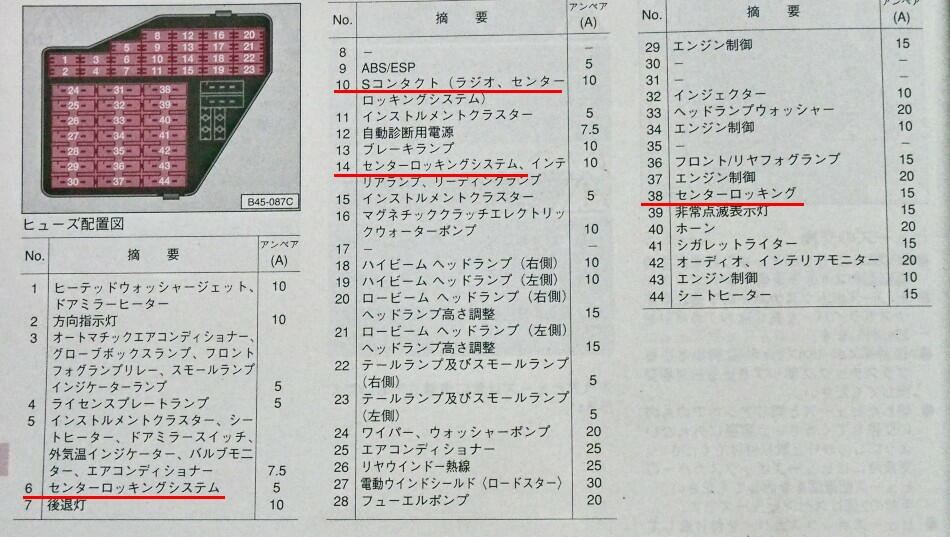 8 12 16 20
5 9 13 17 21
1 3 6 10 14 18 22
2 4 7 11 15 19 23
24 31 38
25 32 39
26 33 40
27 34 41
28 35 42
29 36 43
30 37 44
B45-087C
ヒューズ配置図
No. 摘要 アンペア (A)
1 ヒーテッドウォッシャージェット、 10
ドアミラーヒーター
2 方向指示灯 10
3 オートマチックエアコンディショナー、
グローブボックスランプ、フロント
フォグランプリレー、スモールランプ
インジケーターランプ 5
4 ライセンスプレートランプ 5
5 インストルメントクラスター、シー
トヒーター、ドアミラースイッチ、
外気温インジケーター、バルブモニ
ター、エアコンディショナー 7.5
6 センターロッキングシステム 5
7 後退灯 10
No. 摘要 アンペア (A)
8 − −
9 ABS/ESP 5
10 Sコンタクト（ラジオ、センター 10
ロッキングシステム）
11 インストルメントクラスター 5
12 自動診断用電源 7.5
13 ブレーキランプ 10
14 センターロッキングシステム、インテ 10
リアランプ、リーディングランプ
15 インストルメントクラスター 5
16 マグネチッククラッチエレクトリッ
クウォーターポンプ 10
17 − −
18 ハイビーム ヘッドランプ（右側） 10
19 ハイビーム ヘッドランプ（左側） 10
20 ロービーム ヘッドランプ（右側）
ヘッドランプ高さ調整 15
21 ロービーム ヘッドランプ（左側）
ヘッドランプ高さ調整 15
22 テールランプ及びスモールランプ
(右側) 5
23 テールランプ及びスモールランプ
(左側) 5
24 ワイパー、ウォッシャーポンプ 20
25 エアコンディショナー 25
26 リヤウインドー熱線 25
27 電動ウインドシールド（ロードスター） 30
28 フューエルポンプ 20
No. 摘要 アンペア (A)
29 エンジン制御 15
30 − −
31 − −
32 インジェクター 10
33 ヘッドランプウォッシャー 20
34 エンジン制御 10
35 − −
36 フロント/リヤフォグランプ 15
37 エンジン制御 20
38 センターロッキング 15
39 非常点滅表示灯 15
40 ホーン 20
41 シガレットライター 15
42 オーディオ、インテリアモニター 20
43 エンジン制御 10
44 シートヒーター 15